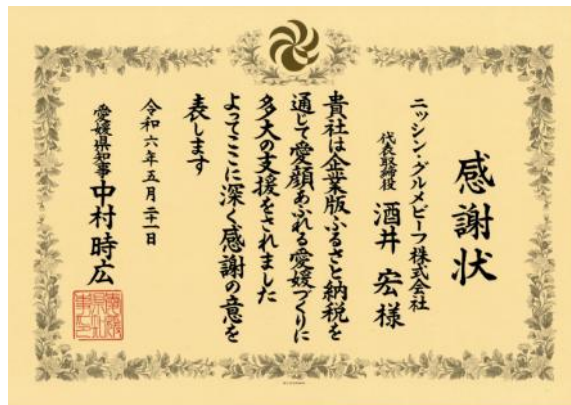 感謝状
ニッシン・グルメビーフ株式会社
代表取締役 酒井 宏 様
貴社は企業版ふるさと納税を
通じて愛顔あふれる愛媛づくりに
多大の支援をされました
よってここに深く感謝の意を
表します
令和六年五月二十一日
愛媛県知事 中村時広